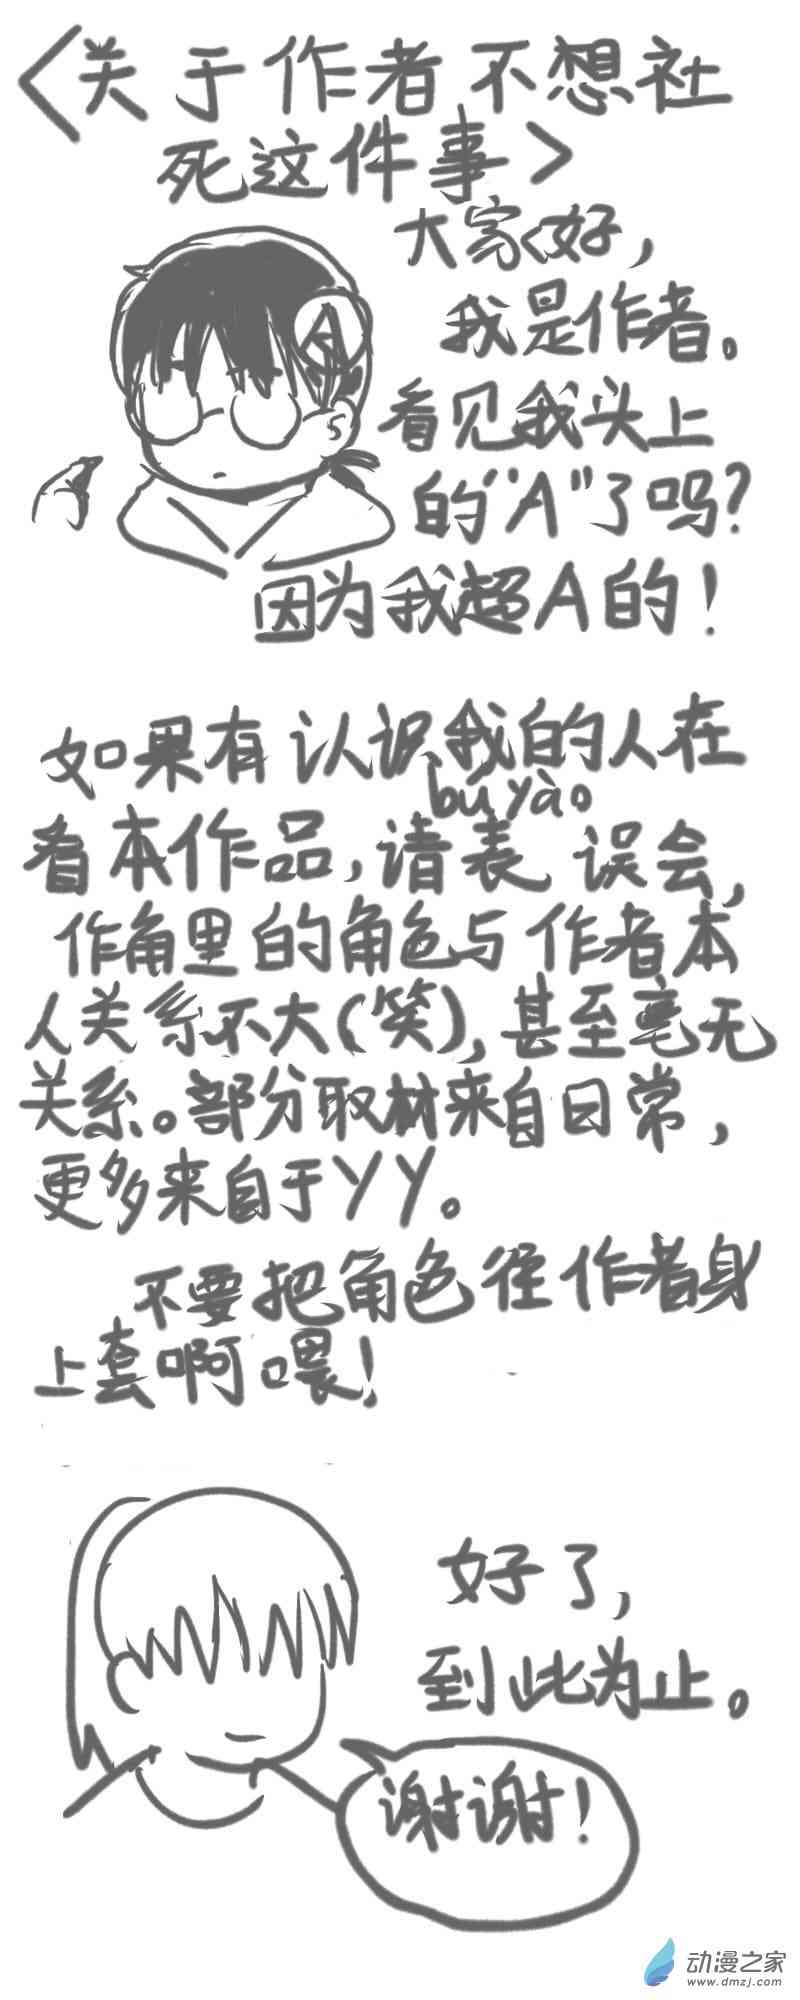 <关于作者不想社
死这件事>
大家好,
我是作者。
看见我头上
的“A”了吗?
因为我超A的!
A
如果有认识我的人在
bú yào
看本作品,请表 误会,
作角里的角色与作者本
人关系不大(笑),甚至毫无
关系。部分取材来自日常,
更多来自于YY。
不要把角色径作者身
上套啊喂!
好了,
到此为止。
谢谢!
动漫之家
www.dmzj.com